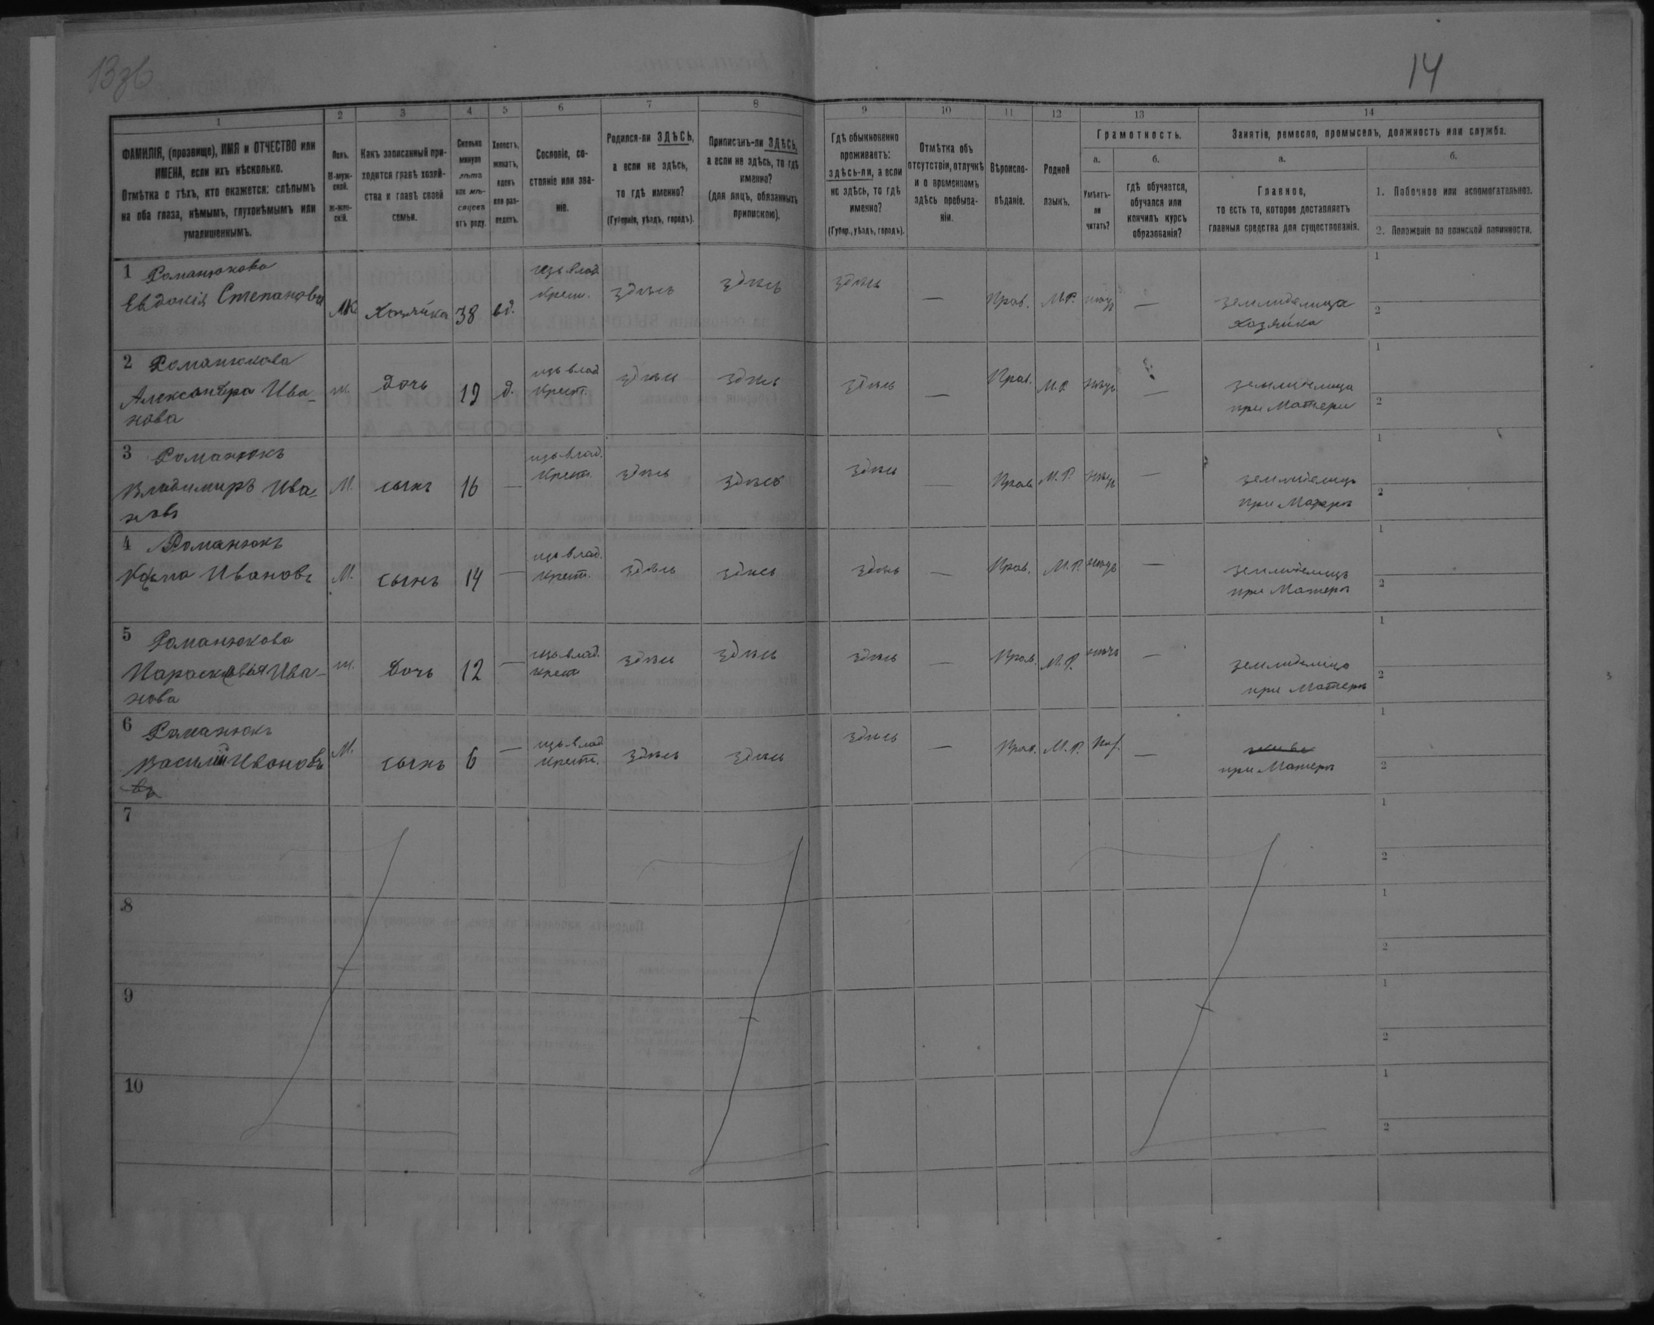 13об
14
1
2
3
4
5
6
7
8
9
10
11
12
13
14
ФАМИЛІЯ, (прозвище), ИМЯ и ОТЧЕСТВО или
ИМЕНА, если ихъ нѣсколько.
Отмѣтка о тѣхъ, кто окажется: слѣпымъ
на оба глаза, нѣмымъ, глухонѣмымъ или
умалишеннымъ.
Полъ.
М-муж-
ской.
Ж-жен-
скій.
Какъ записанный при-
ходится главѣ хозяй-
ства и главѣ своей
семьи.
Сколько
минуло
лѣтъ
или мѣ-
сяцевъ
отъ роду.
Холостъ,
женатъ,
вдовъ
или раз-
веденъ.
Сословіе, со-
стояніе или зва-
ніе.
Родился-ли ЗДѢСЬ,
а если не здѣсь,
то гдѣ именно?
(Губернія, уѣздъ, городъ).
Приписанъ-ли ЗДѢСЬ,
а если не здѣсь, то гдѣ
именно?
(для лицъ, обязанныхъ
припискою).
Гдѣ обыкновенно
проживаетъ:
здѣсь-ли, а если
не здѣсь, то гдѣ
именно?
(Губер., уѣздъ, городъ).
Отмѣтка объ
отсутствіи, отлучкѣ
и о временномъ
здѣсь пребыва-
ніи.
Вѣроиспо-
вѣданіе.
Родной
языкъ.
Грамотность.
а.
Умѣетъ-
ли
читать?
б.
гдѣ обучается,
обучался или
кончилъ курсъ
образованія?
Занятія, ремесло, промыселъ, должность или служба.
а.
Главное,
то есть то, которое доставляетъ
главныя средства для существованія.
б.
1. Побочное или вспомогательное.
2. Положеніе по воинской повинности.
1 Романюкова
Евдокія Степанова
Ж
Хозяйка
38
вд.
здѣсь
здѣсь
здѣсь
—
Прав.
М.Р.
—
Хозяйка
1
2
2 Романюкова
Александра Ива-
нова
ж.
дочь
19
д.
Крест.
здѣсь
здѣсь
здѣсь
—
Прав.
М.Р.
—
при Матери
1
2
3 Романюкъ
Владимиръ Ива-
новъ
М.
сынъ
16
—
Крест.
здѣсь
здѣсь
здѣсь
—
Прав.
М.Р.
—
при Матери
1
2
4 Романюкъ
Ивановъ
М.
сынъ
14
—
Крест.
здѣсь
здѣсь
здѣсь
—
Прав.
М.Р.
—
при Матери
1
2
5 Романюкова
Параскавья Ива-
нова
ж.
дочь
12
—
Крест.
здѣсь
здѣсь
здѣсь
—
Прав.
М.Р.
—
при Матери
1
2
6 Романюкъ
Василій Ивановъ
М.
сынъ
6
—
Крест.
здѣсь
здѣсь
здѣсь
—
Прав.
М.Р.
—
при Матери
1
2
7
1
2
8
1
2
9
1
2
10
1
2